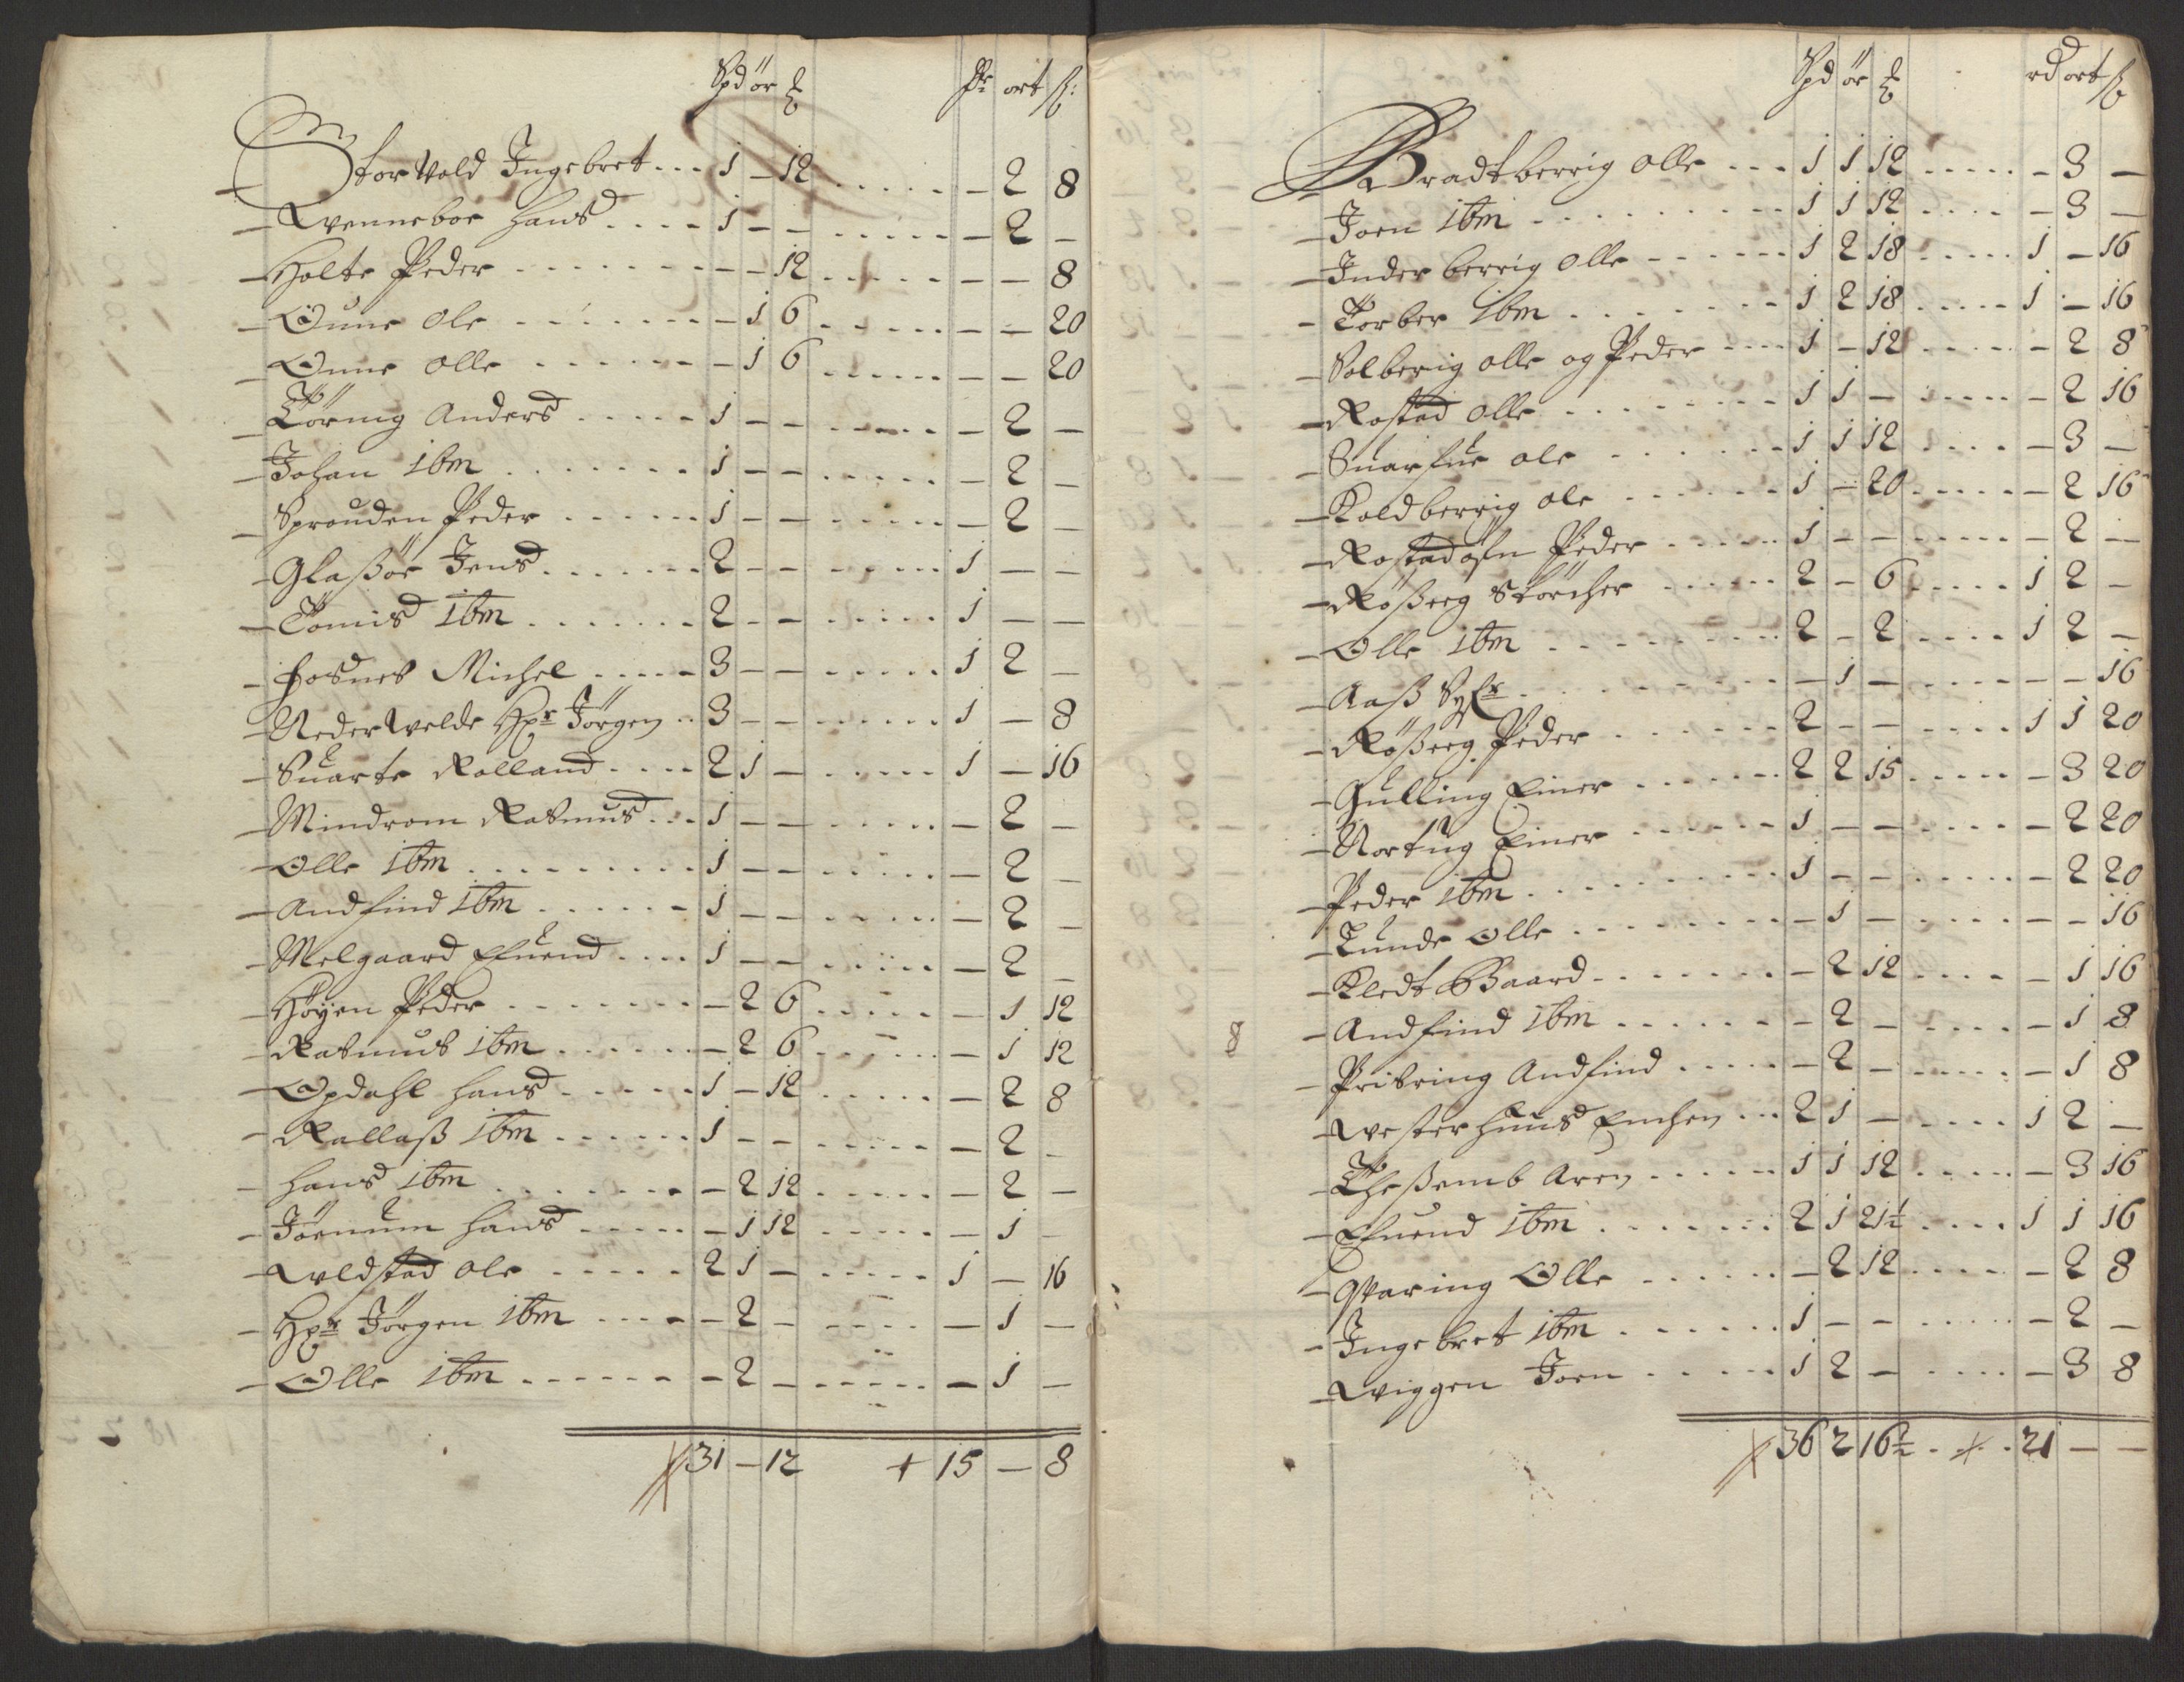 Spd ör ℔ Rdr ort ß:
Storvold Ingebret ... 1 – 12 ..... – 2 8
Wenneboe Hans .... 1 – – ..... – 2 –
Holte Peder ....... – – 12 ..... – – 8
Oune Ole ....... – 1 6 ..... – – 20
Oune Olle ...... – 1 6 ..... – – 20
Törring Anders ..... 1 – – ..... – 2 –
Johan ibm ....... 1 – – ..... – 2 –
Sprouden Peder ..... 1 – – ..... – 2 –
Glaßöe Jens ...... 2 – – ..... 1 – –
Tomis ibm ....... 2 – – ..... 1 – –
Fosnes Michel ..... 3 – – ..... 1 2 –
Nederwelde Hpr Jörgen .. 3 – – ..... 1 – 8
Suarte Rolland .... 2 1 – ..... 1 – 16
Mindrom Rasmus ... 1 – – ..... – 2 –
Olle ibm ......... 1 – – ..... – 2 –
Andfind ibm ...... 1 – – ..... – 2 –
Melgaard Efuend .... 1 – – ..... – 2 –
Höyen Peder ....... – 2 6 ..... – 1 12
Rasmus ibm ...... – 2 6 ..... – 1 12
Opdahl Hans ..... 1 – 12 ..... – 2 8
Rallaß ibm ...... 1 – – ..... – 2 –
Hans ibm ....... – 2 12 ..... – 2 –
Jörnum Hans ..... – 1 12 ..... – 1 –
Weldstad Ole ..... 2 1 – ..... 1 – 16
Hpr Jörgen ibm .... – 2 – ..... – 1 –
Olle ibm ...... – 2 – ..... – 1 –
31 – 12 + 15 – 8
Spd ör ℔ rd ort ß
Bradtberrig Olle ... 1 1 12 ..... – 3 –
Joen ibm ......... 1 1 12 .... – 3 –
Inderberrig Olle ...... 1 2 18 ..... 1 – 16
Torber ibm ....... 1 2 18 ..... 1 – 16
Solberig Olle og Peder ... 1 – 12 ..... – 2 8
Rostad Olle ........ 1 1 – ..... – 2 16
Suarfue Ole ...... 1 1 12 .... – 3 –
Koldberrig Ole ...... 1 – 20 ..... – 2 16
Rostadöfn Peder ..... 1 – – ..... – 2 –
Rößeeg Störcher ..... 2 – 6 ..... 1 2 –
Olle ibm ....... 2 – 2 .... 1 2 –
Aaß ......... – 1 – .... – – 16
Rößeeg Peder ...... 2 – – .... 1 1 20
Gulling Einer ...... 2 2 15 ..... – 3 20
Nortug Einer ...... 1 – – .... – 2 20
Peder ibm ......... 1 – – ..... – 2 20
Tunde Olle ....... – 1 – .... – – 16
Kledt Baard ....... – 2 12 .... – 1 16
8
Andfind ibm ....... – 2 – .... – 1 8
Pribring Andfind ..... – 2 – ..... – 1 8
Westerhuus Enchen ... 2 1 – .... 1 2 –
Theßemb Aren ..... 1 1 12 ..... – 3 16
Efuend ibm ...... 2 1 21½ .... 1 1 16
Quaring Olle ...... – 2 12 .... – 2 8
Ingebret ibm ...... 1 – – ..... – 2 –
Wiggen Joen ..... 1 2 – .... – 3 8
36 2 16½ . + . 21 – –